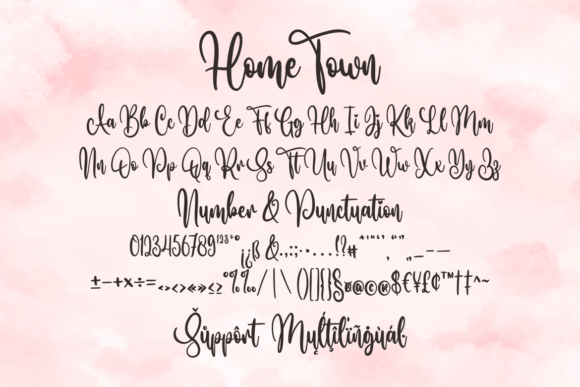 Home Town
Aa Bb Cc Dd Ee Ff Gg Hh Ii Jj Kk Ll Mm
Nn Oo Pp Qq Rr Ss Tt Uu Vv Ww Xx Yy Zz
Number & Punctuation
0123456789¹²³ªº
¡¿ß &.,:;·•…!?#
±−+×÷=-<>‹›«»≤≥°%‰/|\()[]{}§¤@©®$€¥£¢™†‡^~
Šůppôrt Mųĺţįlïñġùáł